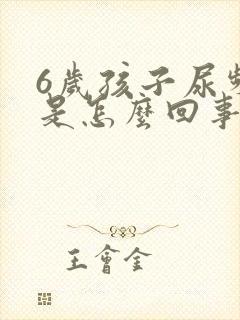 6歲孩子尿頻
是怎麼回事
王會金